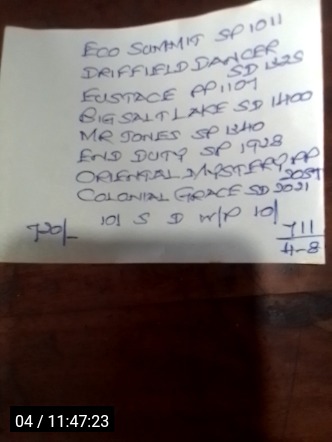 ECO SUMMIT SP 1011
DRIFFIELD DANCER
SD 1325
EUSTACE PP 1107
BIG SALT LAKE SD 1400
MR JONES SP 1340
END DUTY SP 1928
ORIENTAL MYSTERY PP
2057
COLONIAL GRACE SD 2021
101 S D W/P 10/
720/- 711
4-8
04 / 11:47:23